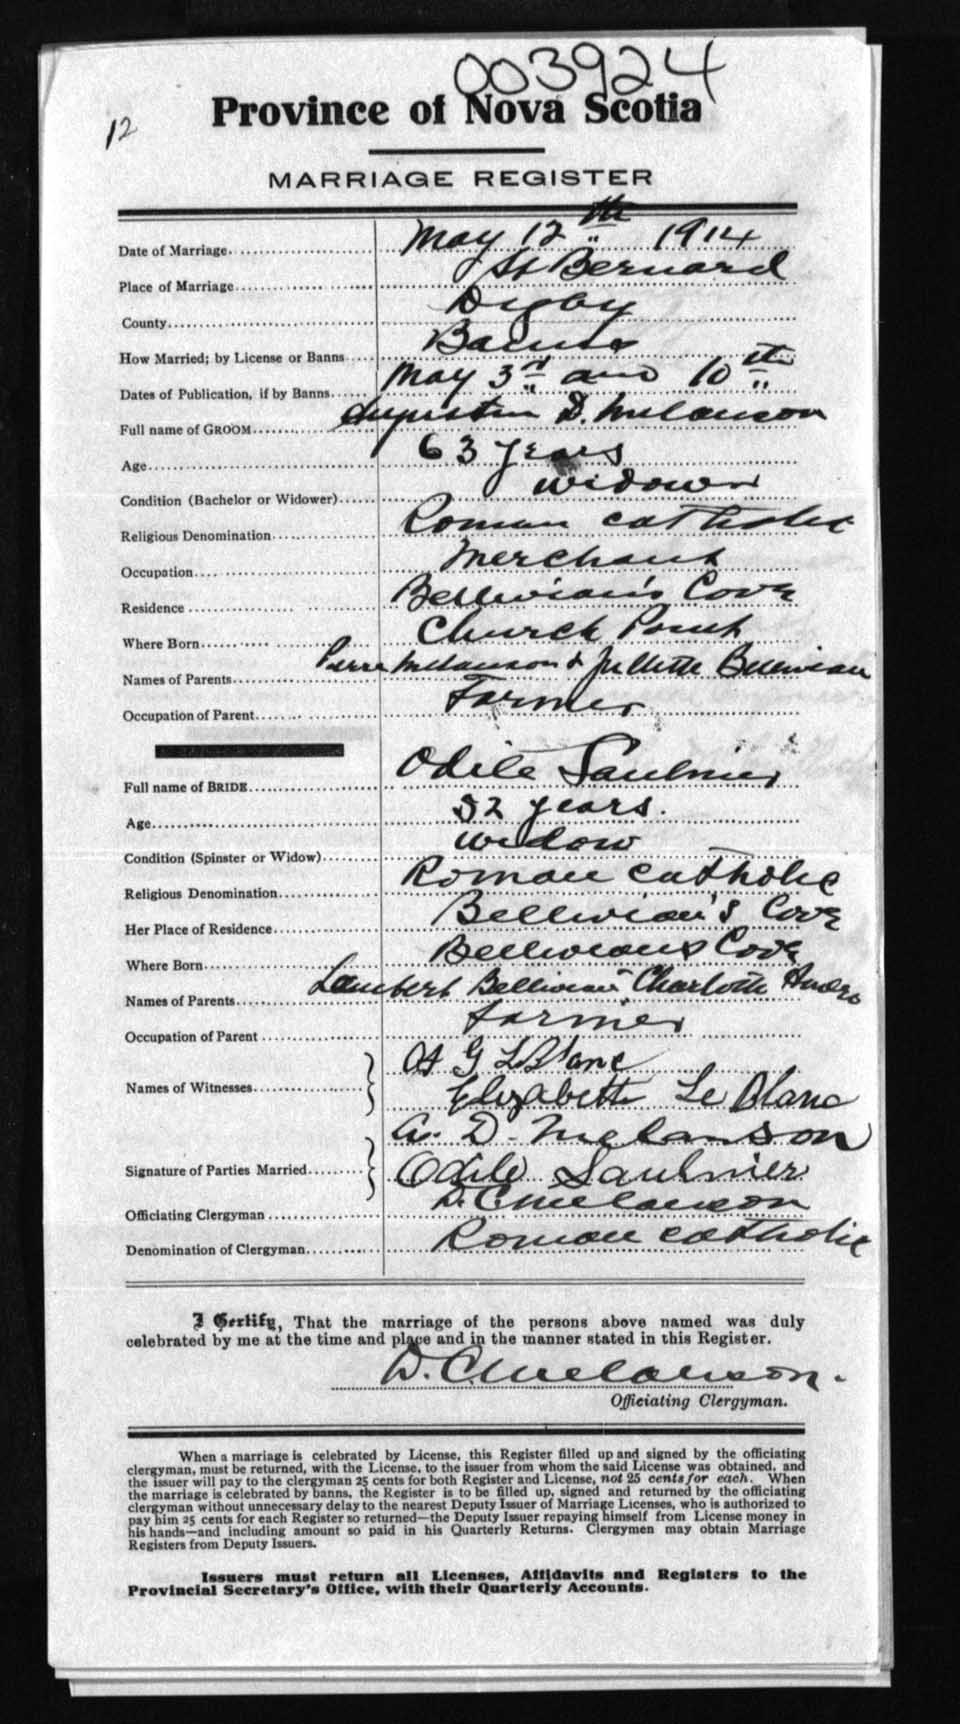 003924
12
Province of Nova Scotia
MARRIAGE REGISTER
Date of Marriage May 12th 1914
Place of Marriage St Bernard
County Digby
How Married; by License or Banns Banns
Dates of Publication, if by Banns May 3rd and 10th
Full name of GROOM D. Melanson
Age 63 years
Condition (Bachelor or Widower) widower
Religious Denomination Roman catholic
Occupation Merchant
Residence Belliveau's Cove
Where Born Church Point
Names of Parents Pierre Melanson & Belliveau
Occupation of Parent Farmer
Full name of BRIDE Odile Saulnier
Age 52 years.
Condition (Spinster or Widow) widow
Religious Denomination Roman catholic
Her Place of Residence Belliveau's Cove
Where Born Belliveaus Cove
Names of Parents Lambert Belliveau Charlotte
Occupation of Parent farmer
Names of Witnesses G LeBlanc
Elizabeth Le Blanc
Signature of Parties Married A. D. Melanson
Odile Saulnier
Officiating Clergyman D. C. Melanson
Denomination of Clergyman Roman catholic
I Certify, That the marriage of the persons above named was duly
celebrated by me at the time and place and in the manner stated in this Register.
D. C. Melanson.
Officiating Clergyman.
When a marriage is celebrated by License, this Register filled up and signed by the officiating
clergyman, must be returned, with the License, to the issuer from whom the said License was obtained, and
the issuer will pay to the clergyman 25 cents for both Register and License, not 25 cents for each. When
the marriage is celebrated by banns, the Register is to be filled up, signed and returned by the officiating
clergyman without unnecessary delay to the nearest Deputy Issuer of Marriage Licenses, who is authorized to
pay him 25 cents for each Register so returned—the Deputy Issuer repaying himself from License money in
his hands—and including amount so paid in his Quarterly Returns. Clergymen may obtain Marriage
Registers from Deputy Issuers.
Issuers must return all Licenses, Affidavits and Registers to the
Provincial Secretary's Office, with their Quarterly Accounts.